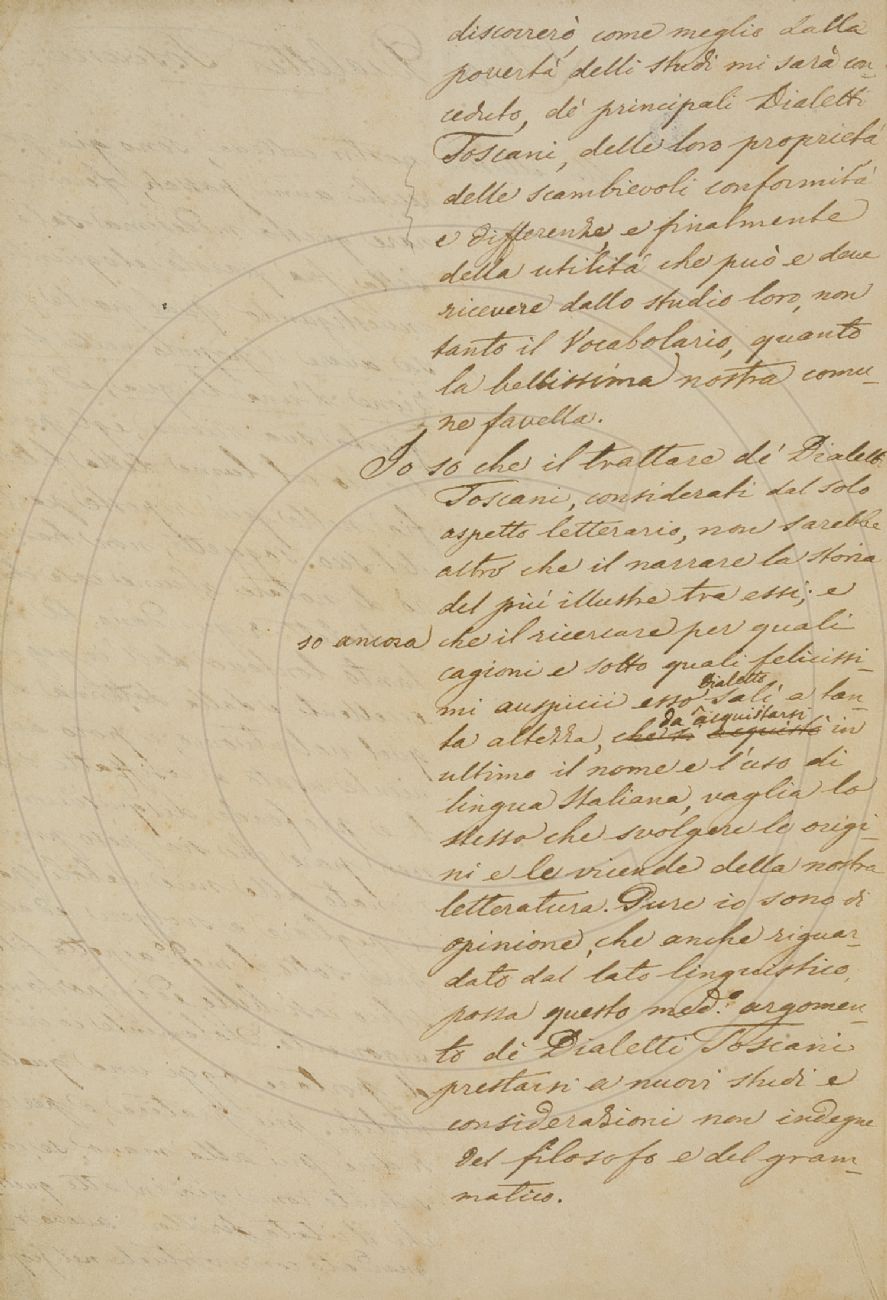 discorrerò, come meglio dalla
povertà delli studi mi sarà con-
ceduto, de' principali Dialetti
Toscani, delle loro proprietà,
delle scambievoli conformità
e differenze, e finalmente
della utilità che può e deve
ricevere dallo studio loro, non
tanto il Vocabolario, quanto
la bellissima nostra comu-
ne favella.
Io so che il trattare de' Dialetti
Toscani, considerati dal solo
aspetto letterario, non sarebbe
altro che il narrare la storia
del più illustre tra essi; e
so ancora che il ricercare per quali
cagioni e sotto quali felicissi-
mi auspicii esso Dialetto salì a tan-
ta altezza, che si acquistò da acquistarsi in
ultimo il nome e l'uso di
lingua Italiana, vaglia lo
stesso che svolgere le origi-
ni e le vicende della nostra
letteratura. Pure io sono di
opinione, che anche riguar-
dato dal lato linguistico,
possa questo med.º argomen-
to de' Dialetti Toscani
prestarsi a nuovi studi e
considerazioni non indegne
del filosofo e del gram-
matico.